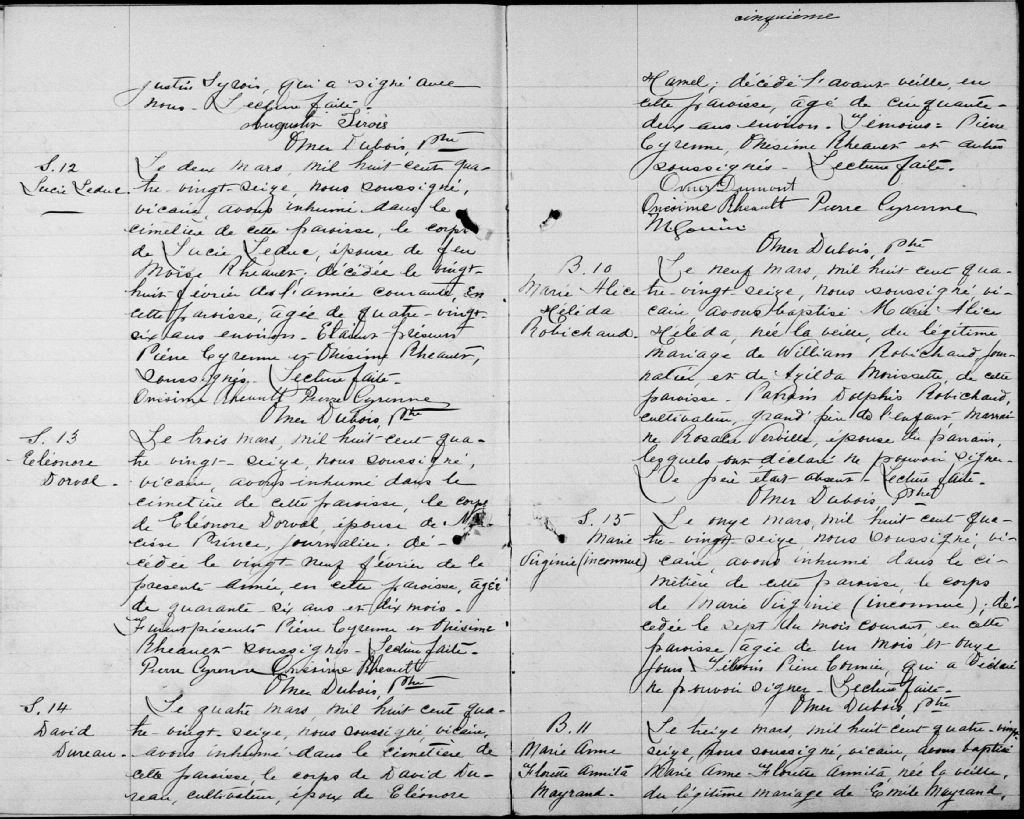 Justin Syrois, qui a signé avec
nous. Lecture faite.
Augustin Sirois
Omer Dubois, Ptre
S. 12
Lucie Leduc
Le deux mars, mil huit cent qua-
tre-vingt-seize, nous soussigné,
vicaire, avons inhumé dans le
cimetière de cette paroisse, le corps
de Lucie Leduc, épouse de feu
Moïse Rheault; décédée le vingt-
huit février de l'année courante, en
cette paroisse, agée de quatre-vingt-
six ans environ. Etaient présents
Pière Cyrenne et Onesime Rheault,
soussignés. Lecture faite.
Onésime Rheault Pierre Cyrenne
Omer Dubois, Ptre
S. 13
Eléonore
Dorval.
Le trois mars, mil huit cent qua-
tre-vingt-seize, nous soussigné,
vicaire, avons inhumé dans le
cimetière de cette paroisse, le corps
de Eléonore Dorval, épouse de
cisse Prince, journalier; dé-
cédée le vingt neuf février de la
presente année, en cette paroisse, agée
de quarante-six ans et dix mois.
Furent présents Pière Cyrenne et Onisime
Rheault soussignés. Lecture faite.
Pierre Cyrenne Onésime Rheault
Omer Dubois, Ptre
S. 14
David
Dureau.
Le quatre mars, mil huit cent qua-
tre-vingt-seize, nous soussigné, vicaire,
avons inhumé dans le cimetière de
cette paroisse, le corps de David Du-
reau, cultivateur, époux de Eléonore
cinquième
Hamel; décédé l'avant veille, en
cette paroisse, agé de cinquante-
deux ans environ. Témoins: Pière
Cyrenne, Onesime Rheault et autres
soussignés. Lecture faite.
Omer Dumont
Onésime Rheault Pierre Cyrenne
Omer Dubois, Ptre
B. 10
Marie Alice
Hélida
Robichaud.
Le neuf mars, mil huit cent qua-
tre-vingt-seize, nous soussigné vi-
caire avons baptisé Marie Alice
Hélida, née la veille, du légitime
mariage de William Robichaud, jour-
nalier, et de Azilda Morissette, de cette
paroisse. Parrain Dolphis Robichaud,
cultivateur, grand père de l'enfant, marrai-
ne Rosalie Verville, épouse du parrain,
lesquels ont déclaré ne pouvoir signer.
Le père était absent. Lecture faite.
Omer Dubois, Ptre
S. 15
Marie
Virginie (inconnue)
Le onze mars, mil huit cent qua-
tre-vingt-seize nous soussigné, vi-
caire, avons inhumé dans le ci-
mitière de cette paroisse, le corps
de Marie Virginie (inconnue); dé-
cédée le sept du mois courant, en cette
paroisse, agée de un mois et onze
jours. Pière Cormier, qui a déclaré
ne pouvoir signer. Lecture faite.
Omer Dubois, Ptre
B. 11
Marie Anne
Florette Annita
Mayrand.
Le treize mars, mil huit cent quatre-vingt
seize, nous soussigné, vicaire, avons baptisé
Marie Anne Florette Annita, née la veille,
du légitime mariage de Emile Mayrand,